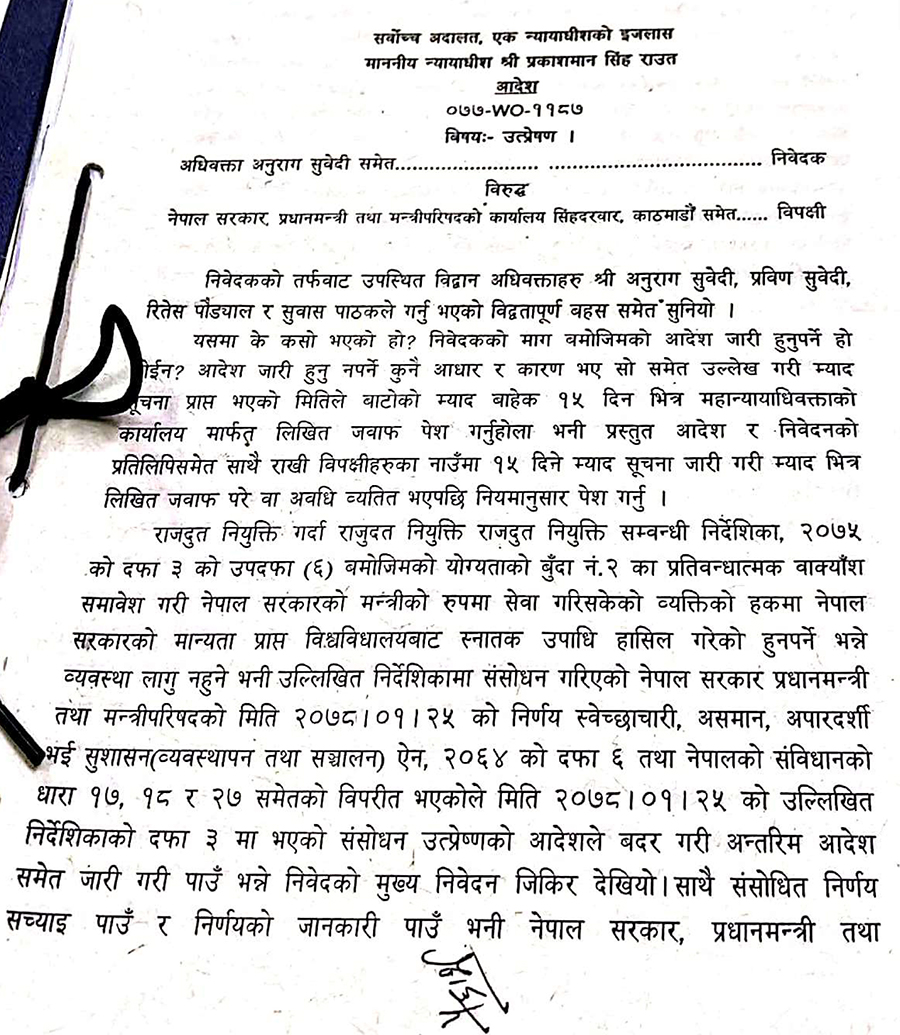 सर्वोच्च अदालत, एक न्यायाधीशको इजलास
माननीय न्यायाधीश श्री प्रकाशमान सिंह राउत
आदेश
०७७-WO-११८७
विषयः- उत्प्रेषण ।
अधिवक्ता अनुराग सुवेदी समेत........................ ..................................... निवेदक
विरुद्ध
नेपाल सरकार, प्रधानमन्त्री तथा मन्त्रीपरिषदको कार्यालय सिंहदरवार, काठमाडौं समेत...... विपक्षी
निवेदकको तर्फवाट उपस्थित विद्वान अधिवक्ताहरु श्री अनुराग सुवेदी, प्रविण सुवेदी,
रितेस पौड्याल र सुवास पाठकले गर्नु भएको विद्वतापूर्ण वहस समेत सुनियो ।
यसमा के कसो भएको हो? निवेदकको माग बमोजिमको आदेश जारी हुनुपर्ने हो
होईन? आदेश जारी हुनु नपर्ने कुनै आधार र कारण भए सो समेत उल्लेख गरी म्याद
सूचना प्राप्त भएको मितिले वाटोको म्याद बाहेक १५ दिन भित्र महान्यायाधिवक्ताको
कार्यालय मार्फत् लिखित जवाफ पेश गर्नुहोला भनी प्रस्तुत आदेश र निवेदनको
प्रतिलिपिसमेत साथै राखी विपक्षीहरुका नाउँमा १५ दिने म्याद सूचना जारी गरी म्याद भित्र
लिखित जवाफ परे वा अवधि व्यतित भएपछि नियमानुसार पेश गर्नु ।
राजदुत नियुक्ति गर्दा राजुदत नियुक्ति राजदुत नियुक्ति सम्वन्धी निर्देशिका, २०७५
को दफा ३ को उपदफा (६) बमोजिमको योग्यताको बुँदा नं.२ का प्रतिवन्धात्मक वाक्याँश
समावेश गरी नेपाल सरकारको मन्त्रीको रुपमा सेवा गरिसकेको व्यक्तिको हकमा नेपाल
सरकारको मान्यता प्राप्त विश्वविधालयबाट स्नातक उपाधि हासिल गरेको हुनपर्ने भन्ने
व्यवस्था लागु नहुने भनी उल्लिखित निर्देशिकामा संसोधन गरिएको नेपाल सरकार प्रधानमन्त्री
तथा मन्त्रीपरिषदको मिति २०७८।०१।२५ को निर्णय स्वेच्छाचारी, असमान, अपारदर्शी
भई सुशासन(व्यवस्थापन तथा सञ्चालन) ऐन, २०६४ को दफा ६ तथा नेपालको संविधानको
धारा १७, १८ र २७ समेतको विपरीत भएकोले मिति २०७८।०१।२५ को उल्लिखित
निर्देशिकाको दफा ३ मा भएको संसोधन उत्प्रेष्णको आदेशले बदर गरी अन्तरिम आदेश
समेत जारी गरी पाउँ भन्ने निवेदको मुख्य निवेदन जिकिर देखियो।साथै संसोधित निर्णय
सच्याइ पाउँ र निर्णयको जानकारी पाउँ भनी नेपाल सरकार, प्रधानमन्त्री तथा